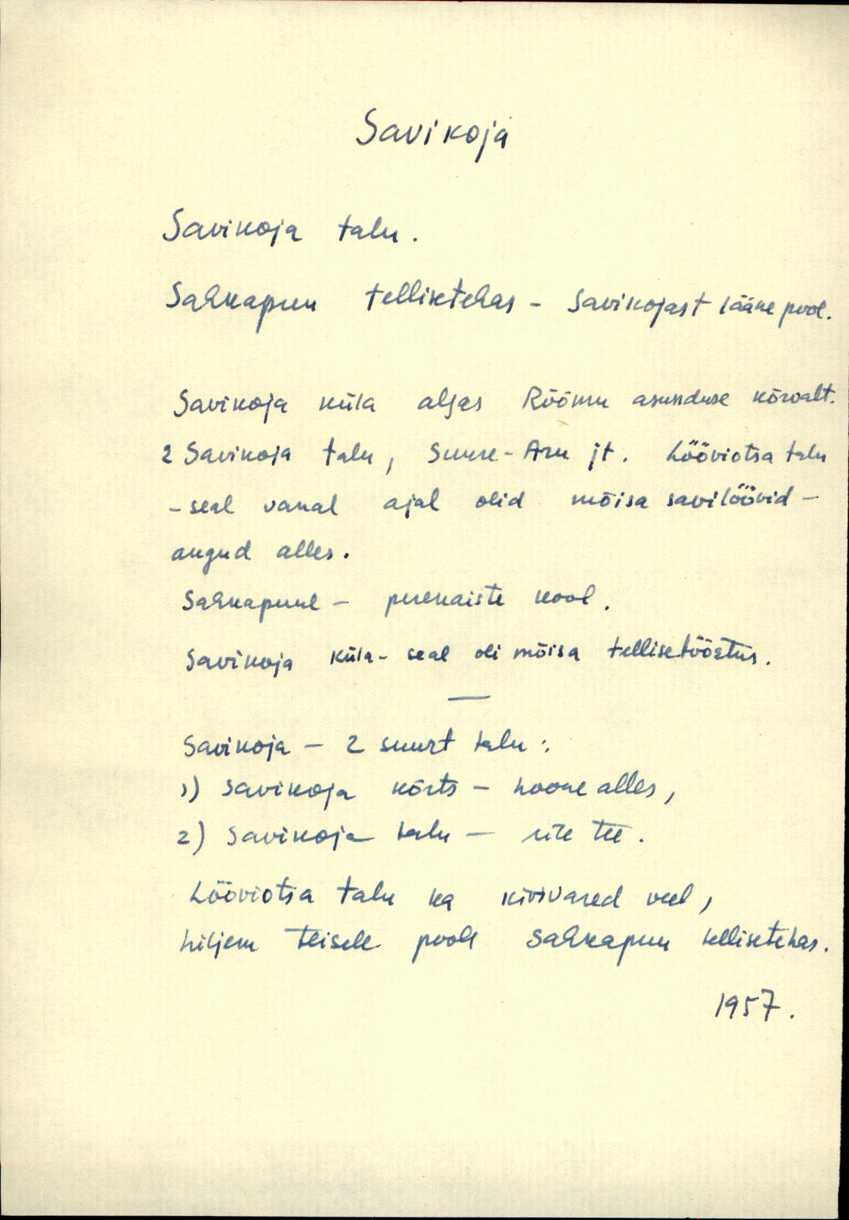 Savikoja
Savikoja talu.
Sahkapuu tellisetehas - Savikojast lääne pool.
Savikoja küla algas Rõõmu asunduse kõrvalt.
2 Savikoja talu, Suure-Aru jt. Lõõviotsa talu
- seal vanal ajal olid mõisa savilõõvid -
augud alles.
Sahkapuul - perenaiste kool.
Savikoja küla - seal oli mõisa tellisetööstus.
Savikoja - 2 suurt talu:
1) Savikoja kõrts - hoone alles,
2) Savikoja talu - üle tee.
Lõõviotsa talu ka kivivared veel,
hiljem teisele poole Sahkapuu tellisetehas.
1957.